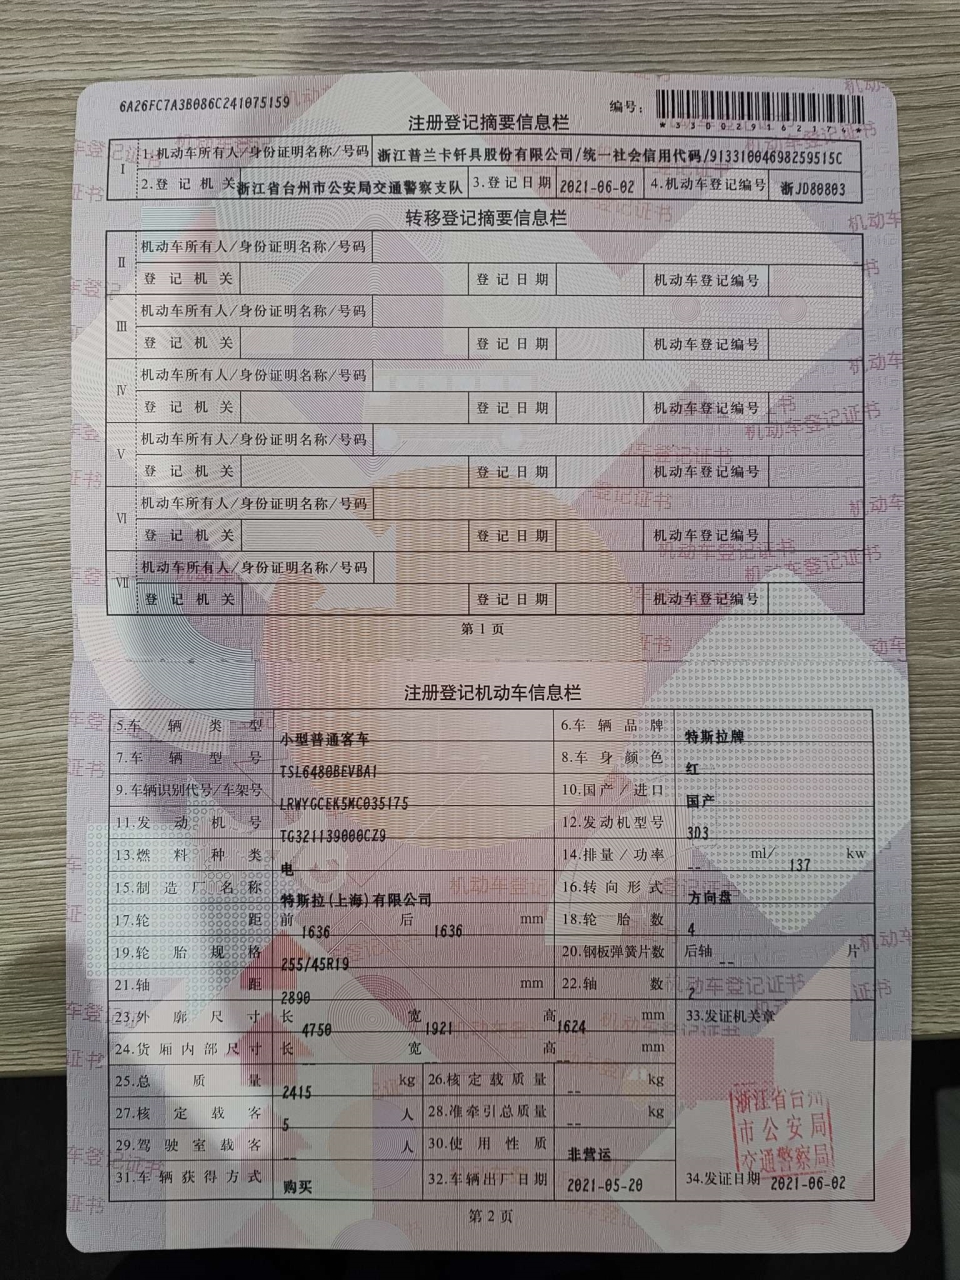 6A26FC7A3B086C241075159
编号：
*330029162174*
注册登记摘要信息栏
I 1.机动车所有人/身份证明名称/号码 浙江普兰卡钎具股份有限公司/统一社会信用代码/91331004698259515C
2.登记机关 浙江省台州市公安局交通警察支队 3.登记日期 2021-06-02 4.机动车登记编号 浙JD80803
转移登记摘要信息栏
II 机动车所有人/身份证明名称/号码
登记机关 登记日期 机动车登记编号
III 机动车所有人/身份证明名称/号码
登记机关 登记日期 机动车登记编号
IV 机动车所有人/身份证明名称/号码
登记机关 登记日期 机动车登记编号
V 机动车所有人/身份证明名称/号码
登记机关 登记日期 机动车登记编号
VI 机动车所有人/身份证明名称/号码
登记机关 登记日期 机动车登记编号
VII 机动车所有人/身份证明名称/号码
登记机关 登记日期 机动车登记编号
第1页
注册登记机动车信息栏
5.车辆类型 小型普通客车 6.车辆品牌 特斯拉牌
7.车辆型号 TSL6480BEVBA1 8.车身颜色 红
9.车辆识别代号/车架号 LRWYGCEK5MC035175 10.国产/进口 国产
11.发动机号 TG321139000CZ9 12.发动机型号 3D3
13.燃料种类 电 14.排量/功率 -- ml/ 137 kw
15.制造厂名称 特斯拉(上海)有限公司 16.转向形式 方向盘
17.轮距 前 1636 后 1636 mm 18.轮胎数 4
19.轮胎规格 255/45R19 20.钢板弹簧片数 后轴 -- 片
21.轴距 2890 mm 22.轴数 2
23.外廓尺寸 长 4750 宽 1921 高 1624 mm 33.发证机关章
24.货厢内部尺寸 长 -- 宽 -- 高 -- mm
25.总质量 2415 kg 26.核定载质量 -- kg
27.核定载客 5 人 28.准牵引总质量 -- kg
29.驾驶室载客 -- 人 30.使用性质 非营运
31.车辆获得方式 购买 32.车辆出厂日期 2021-05-20 34.发证日期 2021-06-02
浙江省台州
市公安局
交通警察局
第2页